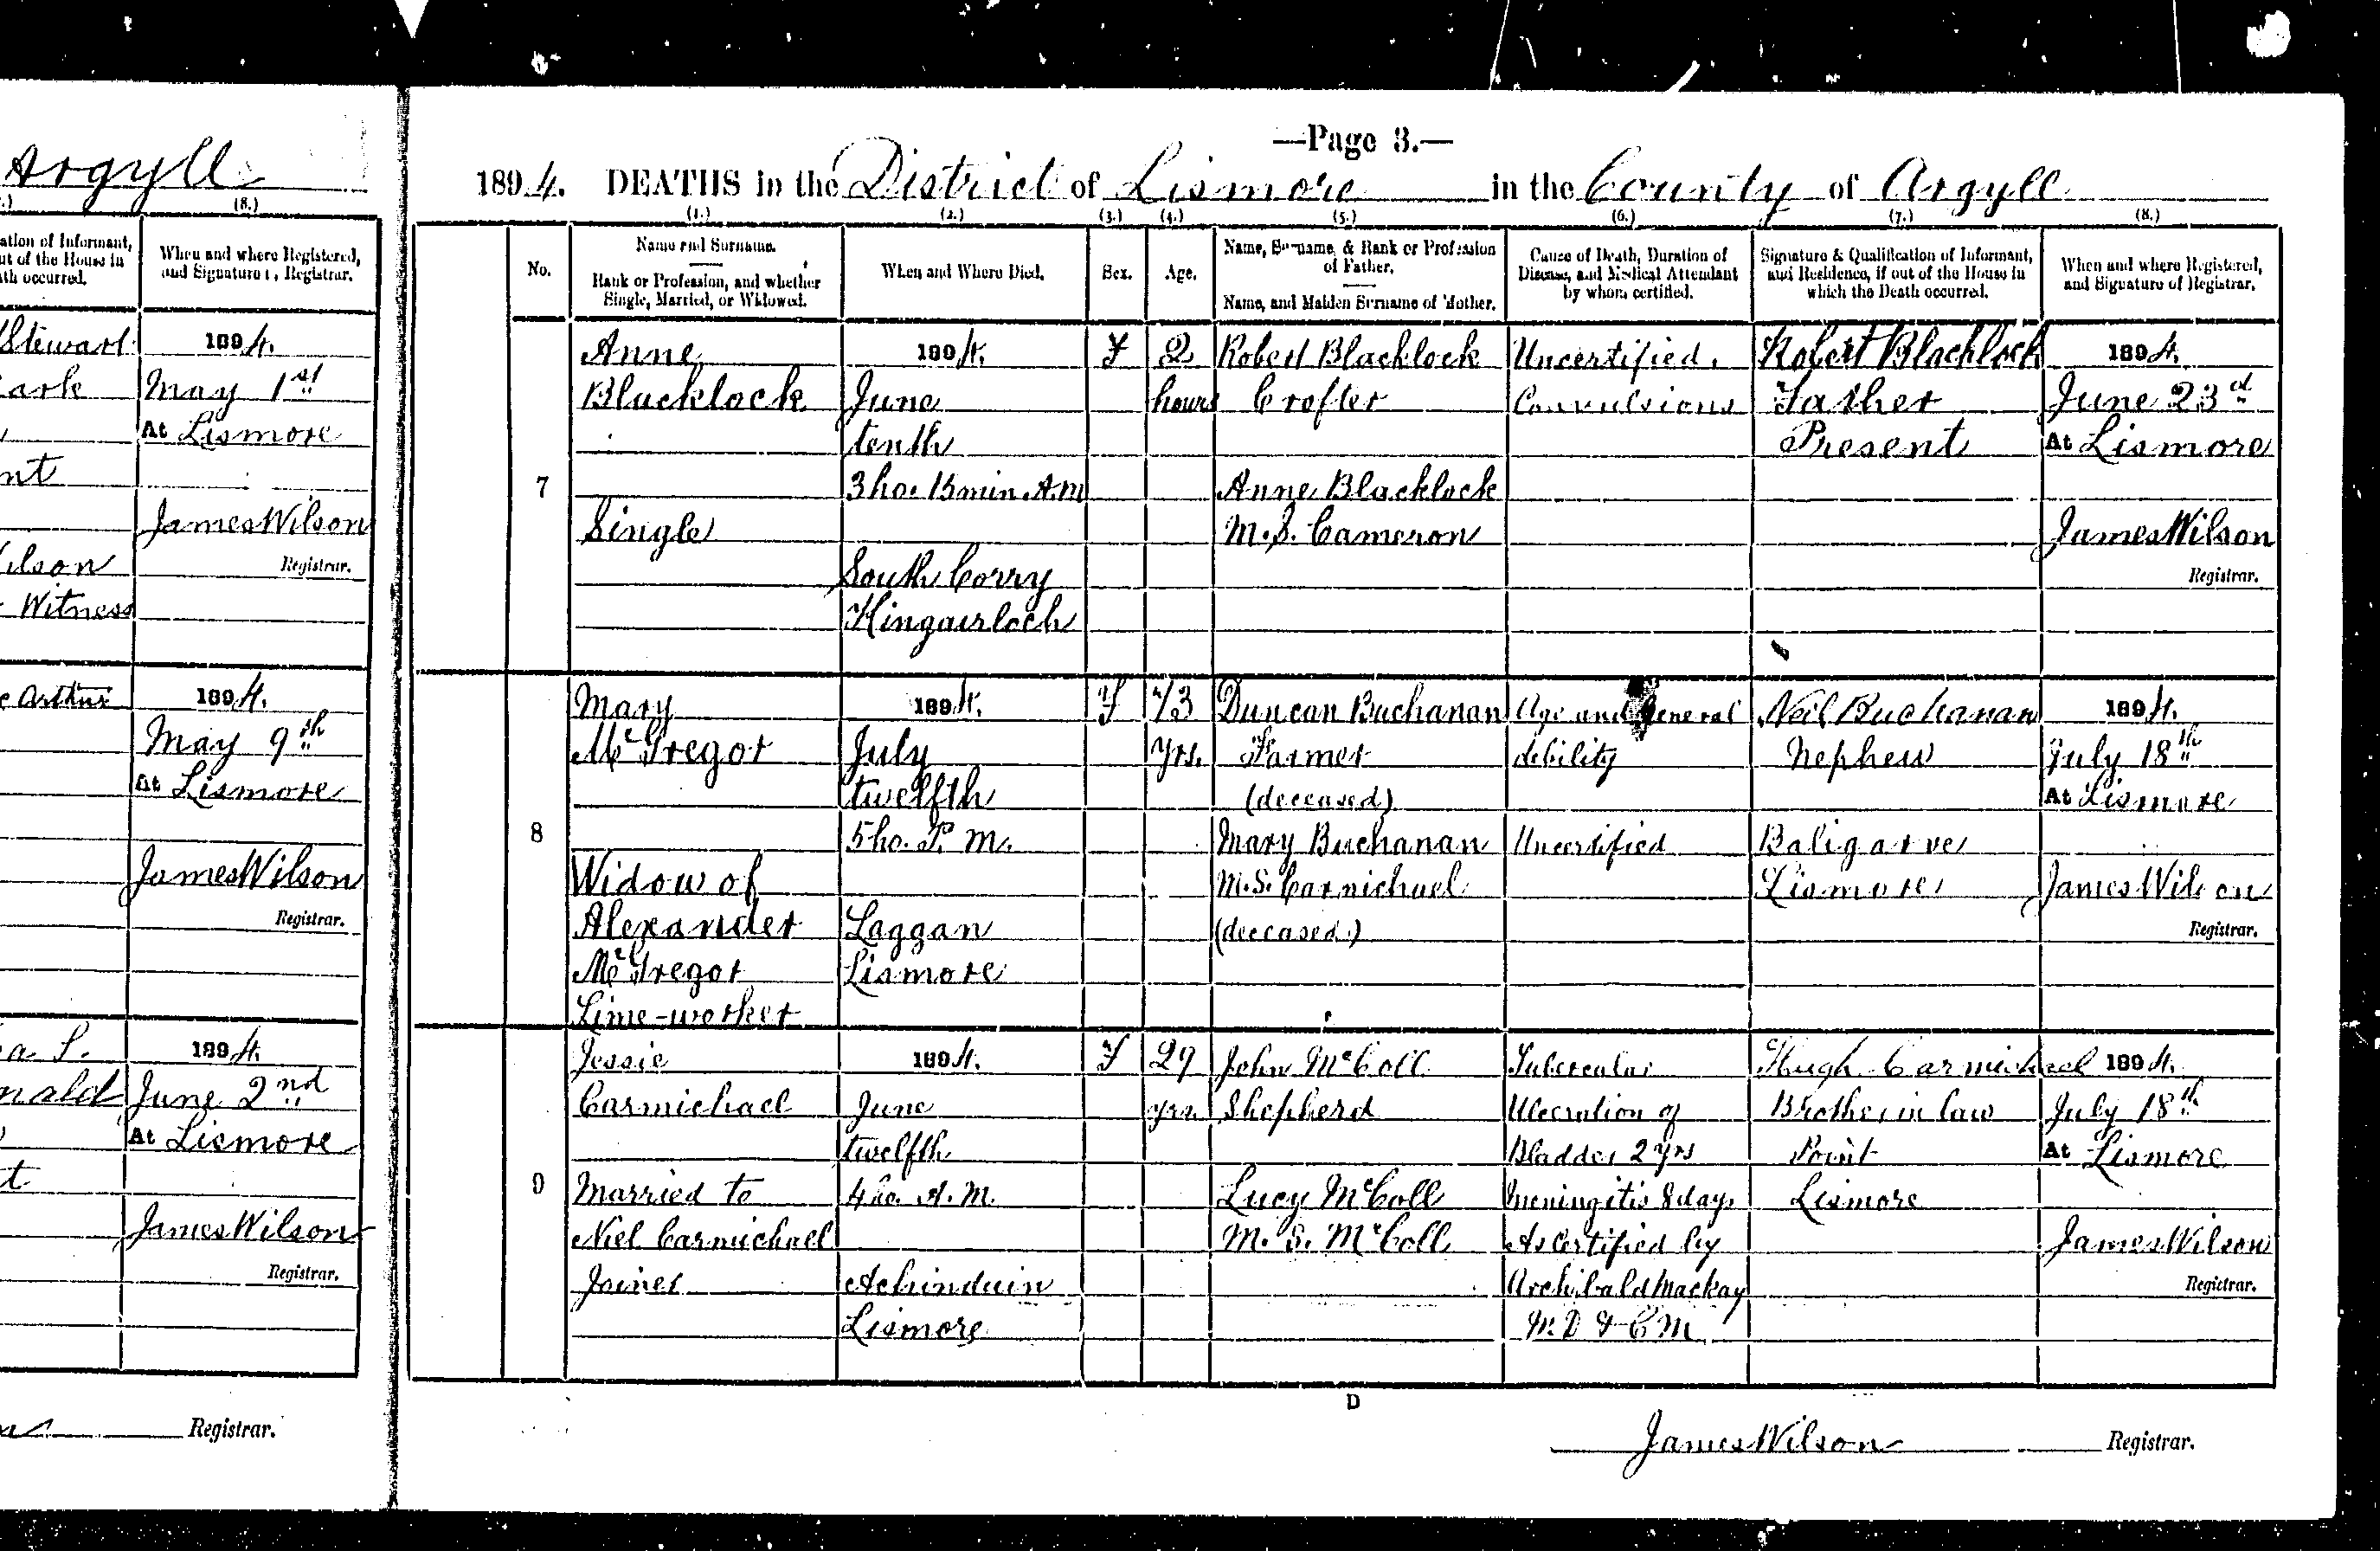 Argyll
(8.)
ation of Informant,
ut of the House in
th occurred.
When and where Registered,
and Signature of Registrar.
Stewart
ark
nt
ilson
Witness
1894.
May 1st
At Lismore
James Wilson
Registrar.
c Arthur
1894.
May 9th
At Lismore
James Wilson
Registrar.
a S.
nald
t
1894.
June 2nd
At Lismore
James Wilson
Registrar.
Registrar.
—Page 3.—
1894. DEATHS in the District of Lismore in the County of Argyll
(1.) (2.) (3.) (4.) (5.) (6.) (7.) (8.)
No.
Name and Surname.
Rank or Profession, and whether
Single, Married, or Widowed.
When and Where Died.
Sex.
Age.
Name, Surname, & Rank or Profession
of Father.
Name, and Maiden Surname of Mother.
Cause of Death, Duration of
Disease, and Medical Attendant
by whom certified.
Signature & Qualification of Informant,
and Residence, if out of the House in
which the Death occurred.
When and where Registered,
and Signature of Registrar.
7
Anne
Blacklock
Single
1894.
June
tenth
3 ho. 15 min. A.M
South Corry
Kingairloch
F
2
hours
Robert Blacklock
Crofter
Anne Blacklock
M.S. Cameron
Uncertified.
Convulsions
Robert Blacklock
Father
Present
1894.
June 23d
At Lismore
James Wilson
Registrar.
8
Mary
McGregor
Widow of
Alexander
McGregor
Lime-worker
1894.
July
twelfth
5 ho. P. M.
Laggan
Lismore
F
73
yrs.
Duncan Buchanan
Farmer
(deceased)
Mary Buchanan
M.S. Carmichael
(deceased)
Age and General
debility
Uncertified
Neil Buchanan
Nephew
Baligarve
Lismore
1894.
July 18th
At Lismore
James Wilson
Registrar.
9
Jessie
Carmichael
Married to
Niel Carmichael
Joiner
1894.
June
twelfth
4 ho. A. M.
Achinduin
Lismore
F
29
yrs
John McColl
Shepherd
Lucy McColl
M. S. McColl
Tubercular
Ulceration of
Bladder 2 yrs
Meningitis 8 days
As Certified by
Archibald Mackay
M.D & C M
Hugh Carmichael
Brother in law
Point
Lismore
1894.
July 18th
At Lismore
James Wilson
Registrar.
D
James Wilson Registrar.